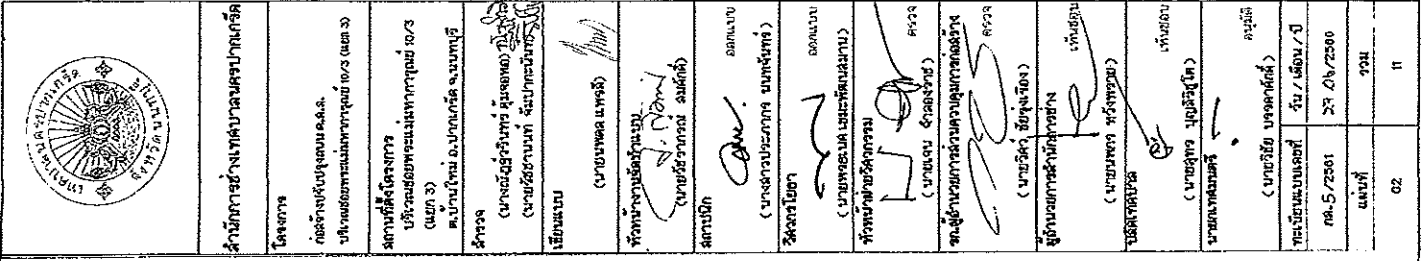 เทศบาลนครปากเกร็ด
จังหวัดนนทบุรี
สำนักการช่างเทศบาลนครปากเกร็ด
โครงการ
ก่อสร้างปรับปรุงถนนค.ส.ล.
บริเวณซอยพระแม่มหาการุณย์ 10/3 (แยก 3)
สถานที่ตั้งโครงการ
บริเวณซอยพระแม่มหาการุณย์ 10/3
(แยก 3)
ต.บ้านใหม่ อ.ปากเกร็ด จ.นนทบุรี
สำรวจ
เขียนแบบ
(นายนพดล แพรลี)
หัวหน้างานจัดทำแบบ
(นายวัชราภรณ์ สมศักดิ์)
สถาปนิก
ออกแบบ
(นางสาวประภากร นนทจันทร์)
วิศวกรโยธา
ออกแบบ
หัวหน้าฝ่ายวิศวกรรม
ตรวจ
(นายเจน จำลองราช)
รก.ผู้อำนวยการส่วนควบคุมการก่อสร้าง
ตรวจ
(นายวิศวะ ชัยรุ่งเรือง)
ผู้อำนวยการสำนักการช่าง
เห็นชอบ
(นายนพพร หวังพราย)
ปลัดเทศบาล
เห็นชอบ
นายกเทศมนตรี
อนุมัติ
(นายวิชัย บรรดาศักดิ์)
ทะเบียนแบบเลขที่ วัน / เดือน / ปี
กส.5/2561
แผ่นที่ รวม
02 11